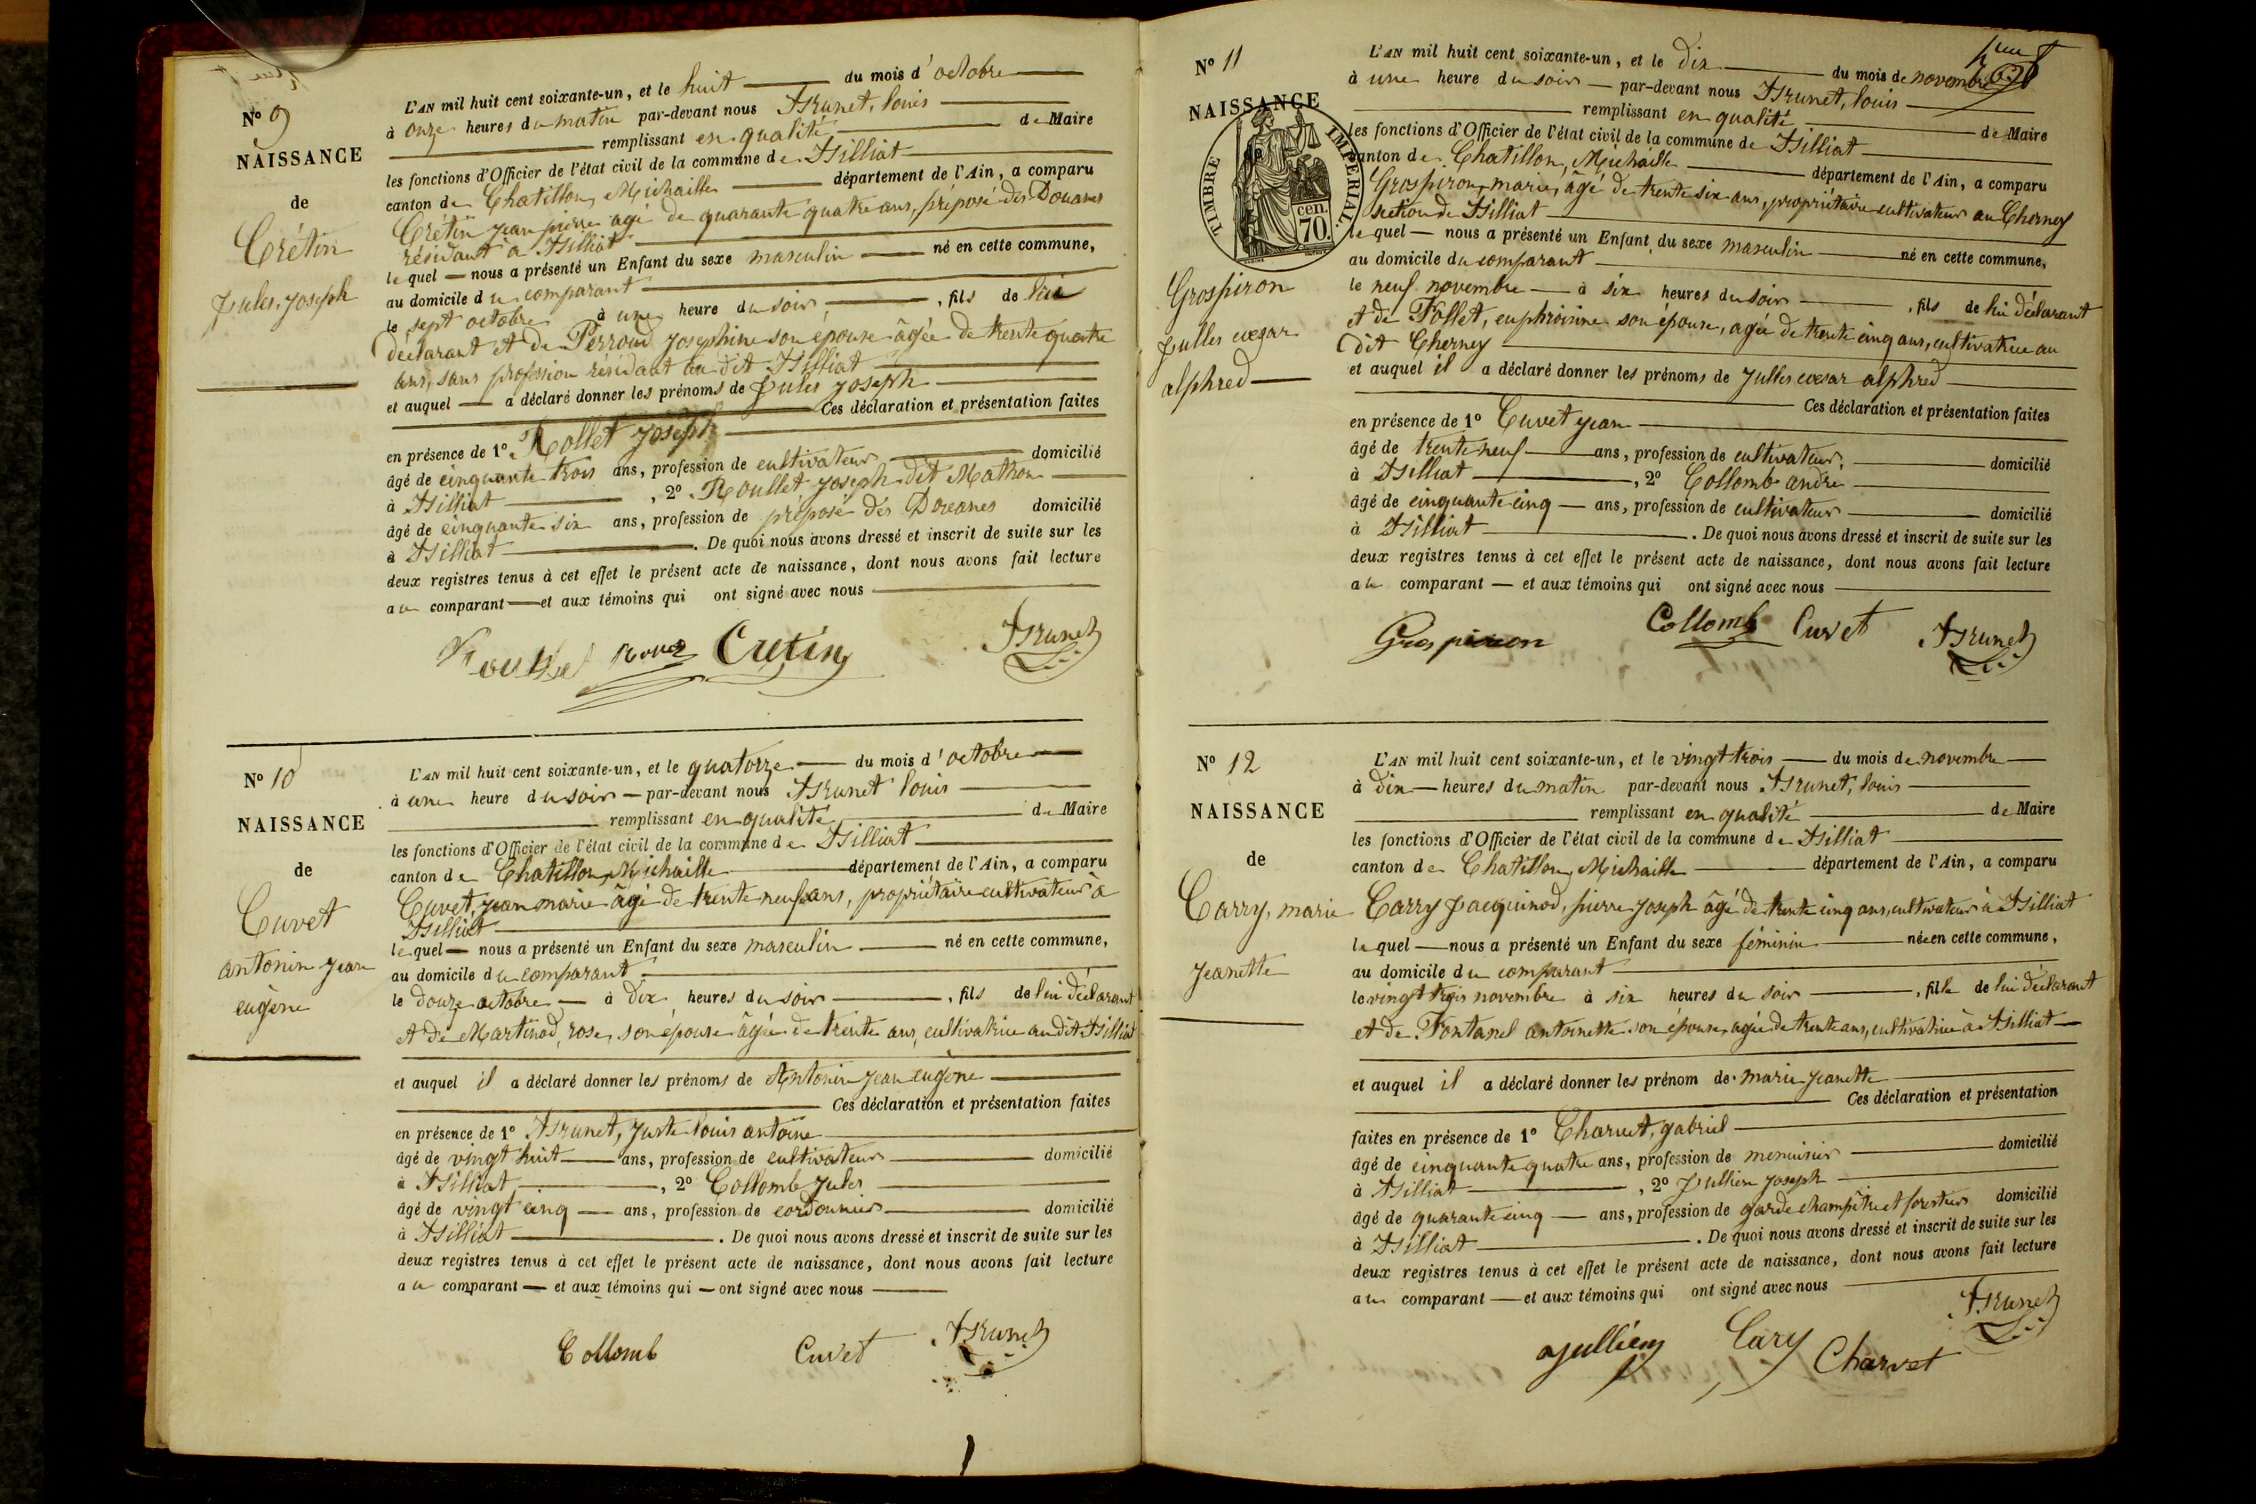 N° 9
NAISSANCE
de
Crétin
jules, joseph
L'AN mil huit cent soixante-un, et le huit du mois d'octobre
à onze heures du matin par-devant nous Brunet, louis
remplissant en qualité de Maire
les fonctions d'Officier de l'état civil de la commune de Billiat
canton de Chatillon, Michaille département de l'Ain, a comparu
Crétin jean pierre agé de quarante quatre ans, préposé des Douanes
résidant à Billiat
lequel nous a présenté un Enfant du sexe masculin né en cette commune,
au domicile du comparant
le sept octobre à une heure du soir, fils de lui
déclarant et de Perroud josephine son épouse âgée de trente quatre
ans, sans profession résidant au dit Billiat
et auquel a déclaré donner les prénoms de jules joseph
Ces déclaration et présentation faites
en présence de 1° Rollet joseph
âgé de cinquante trois ans, profession de cultivateur domicilié
à Billiat, 2° Roullet joseph dit Mathon
âgé de cinquante six ans, profession de préposé des Douanes domicilié
à Billiat. De quoi nous avons dressé et inscrit de suite sur les
deux registres tenus à cet effet le présent acte de naissance, dont nous avons fait lecture
au comparant et aux témoins qui ont signé avec nous
Cretin Brunet
N° 10
NAISSANCE
de
Cuvet
antonin jean
eugène
L'AN mil huit cent soixante-un, et le quatorze du mois d'octobre
à une heure du soir par-devant nous Brunet louis
remplissant en qualité de Maire
les fonctions d'Officier de l'état civil de la commune de Billiat
canton de Chatillon, Michaille département de l'Ain, a comparu
Cuvet, jean marie âgé de trente neuf ans, propriétaire cultivateur à
Billiat
lequel nous a présenté un Enfant du sexe masculin né en cette commune,
au domicile du comparant
le douze octobre à dix heures du soir, fils de lui déclarant
et de Martinod, rose, son épouse âgée de trente ans, cultivatrice au dit Billiat
et auquel il a déclaré donner les prénoms de Antonin jean eugène
Ces déclaration et présentation faites
en présence de 1° Brunet, juste louis antoine
âgé de vingt huit ans, profession de cultivateur domicilié
à Billiat, 2° Collomb jules
âgé de vingt cinq ans, profession de cordonnier domicilié
à Billiat. De quoi nous avons dressé et inscrit de suite sur les
deux registres tenus à cet effet le présent acte de naissance, dont nous avons fait lecture
au comparant et aux témoins qui ont signé avec nous
Collomb Cuvet Brunet
N° 11
NAISSANCE
TIMBRE IMPERIAL.
cen. 70.
Grospiron
julles cœzar
alphred
L'AN mil huit cent soixante-un, et le dix du mois de novembre
à une heure du soir par-devant nous Brunet, louis
remplissant en qualité de Maire
les fonctions d'Officier de l'état civil de la commune de Billiat
canton de Chatillon, Michaille département de l'Ain, a comparu
Grospiron, marie, âgé de trente six ans, propriétaire cultivateur au Cherney
section de Billiat
lequel nous a présenté un Enfant du sexe masculin né en cette commune,
au domicile du comparant
le neuf novembre à six heures du soir, fils de lui déclarant
et de Follet, euphrosinne son épouse, agée de trente cinq ans, cultivatrice au
dit Cherney
et auquel il a déclaré donner les prénoms de julles cœzar alphred
Ces déclaration et présentation faites
en présence de 1° Cuvet jean
âgé de trente neuf ans, profession de cultivateur, domicilié
à Billiat, 2° Collomb andré
âgé de cinquante cinq ans, profession de cultivateur domicilié
à Billiat. De quoi nous avons dressé et inscrit de suite sur les
deux registres tenus à cet effet le présent acte de naissance, dont nous avons fait lecture
au comparant et aux témoins qui ont signé avec nous
Grospiron Collomb Cuvet Brunet
N° 12
NAISSANCE
de
Carry, marie
jeanette
L'AN mil huit cent soixante-un, et le vingt trois du mois de novembre
à dix heures du matin par-devant nous Brunet, louis
remplissant en qualité de Maire
les fonctions d'Officier de l'état civil de la commune de Billiat
canton de Chatillon, Michaille département de l'Ain, a comparu
Carry jacquinod, pierre joseph âgé de trente cinq ans, cultivateur à Billiat
lequel nous a présenté un Enfant du sexe féminin née en cette commune,
au domicile du comparant
le vingt trois novembre à six heures du soir, fille de lui déclarant
et de Fontanel antoinette son épouse, agée de trente ans, cultivatrice à Billiat
et auquel il a déclaré donner les prénom de marie jeanette
Ces déclaration et présentation
faites en présence de 1° Charvet, gabriel
âgé de cinquante quatre ans, profession de menuisier domicilié
à Billiat, 2° jullien joseph
âgé de quarante cinq ans, profession de garde champêtre et forestier domicilié
à Billiat. De quoi nous avons dressé et inscrit de suite sur les
deux registres tenus à cet effet le présent acte de naissance, dont nous avons fait lecture
au comparant et aux témoins qui ont signé avec nous
jullien Cary Charvet Brunet